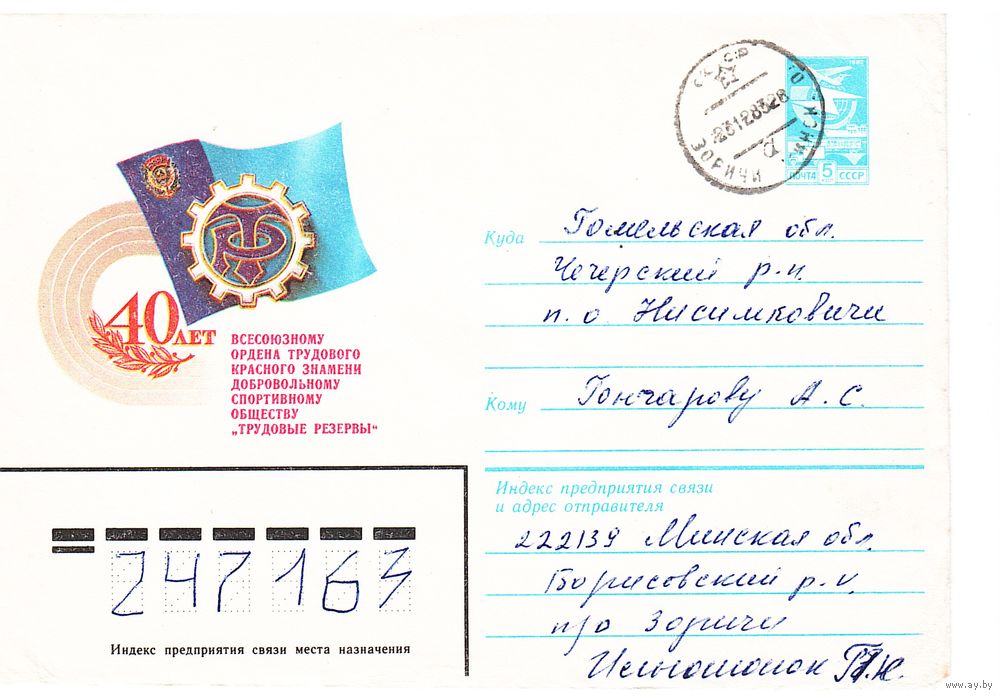 40 ЛЕТ
ВСЕСОЮЗНОМУ
ОРДЕНА ТРУДОВОГО
КРАСНОГО ЗНАМЕНИ
ДОБРОВОЛЬНОМУ
СПОРТИВНОМУ
ОБЩЕСТВУ
„ТРУДОВЫЕ РЕЗЕРВЫ“
СССР
ЗОРИЧИ
ПОЧТА 5 СССР
Куда Гомельская обл.
Чечерский р-н
п. о Нисимковичи
Кому Гончарову А. С.
Индекс предприятия связи
и адрес отправителя
222139 Минская обл.
Борисовский р-н
п/о Зоричи
247163
Индекс предприятия связи места назначения
www.ay.by